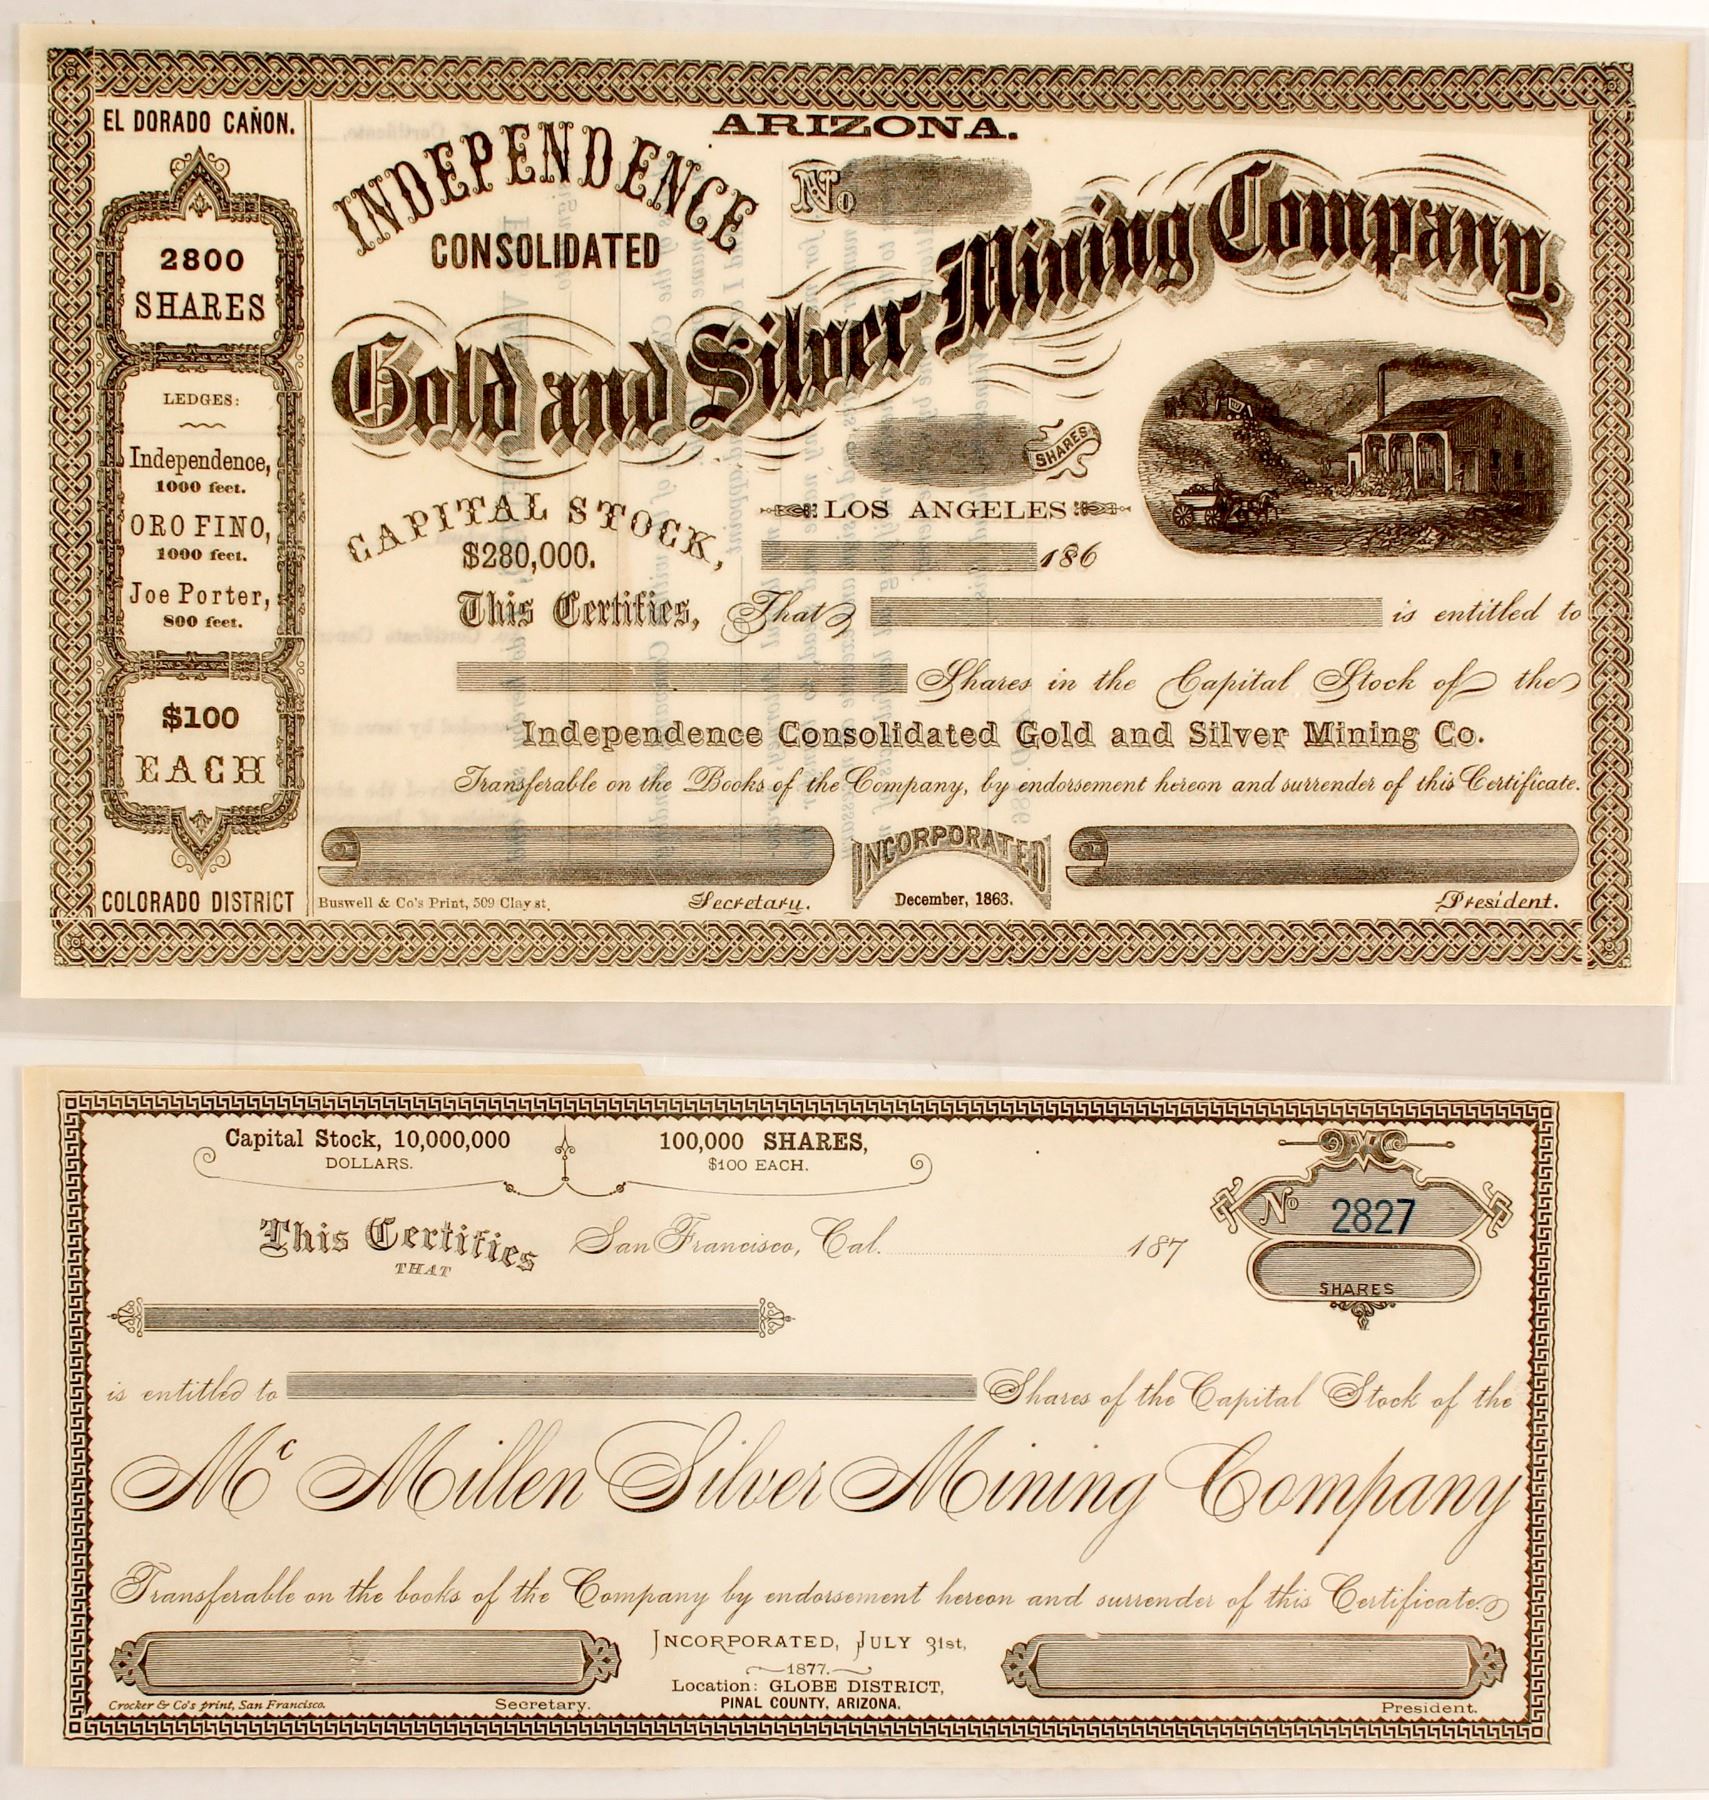 EL DORADO CAÑON.
2800
SHARES
LEDGES:
Independence,
1000 feet.
ORO FINO,
1000 feet.
Joe Porter,
800 feet.
$100
EACH
COLORADO DISTRICT
ARIZONA.
INDEPENDENCE
CONSOLIDATED
No
Gold and Silver Mining Company.
SHARES
CAPITAL STOCK,
$280,000.
LOS ANGELES
186
This Certifies, That is entitled to
Shares in the Capital Stock of the
Independence Consolidated Gold and Silver Mining Co.
Transferable on the Books of the Company, by endorsement hereon and surrender of this Certificate.
INCORPORATED
December, 1863.
Buswell & Co's Print, 509 Clay st.
Secretary.
President.
Capital Stock, 10,000,000
DOLLARS.
100,000 SHARES,
$100 EACH.
No 2827
SHARES
This Certifies
THAT
San Francisco, Cal. 187
is entitled to Shares of the Capital Stock of the
Mc Millen Silver Mining Company
Transferable on the books of the Company by endorsement hereon and surrender of this Certificate.
INCORPORATED, JULY 31st,
1877.
Location: GLOBE DISTRICT,
PINAL COUNTY, ARIZONA.
Crocker & Co's print, San Francisco.
Secretary.
President.